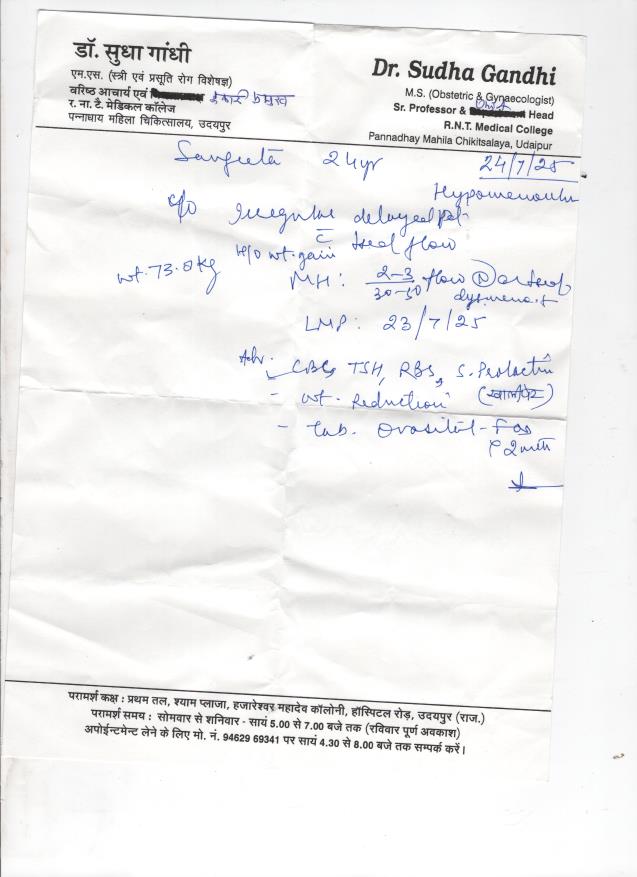 डॉ. सुधा गांधी
एम.एस. (स्त्री एवं प्रसूति रोग विशेषज्ञ)
वरिष्ठ आचार्य एवं
र. ना. टै. मेडिकल कॉलेज
पन्नाधाय महिला चिकित्सालय, उदयपुर
Dr. Sudha Gandhi
M.S. (Obstetric & Gynaecologist)
Sr. Professor & Unit Head
R.N.T. Medical College
Pannadhay Mahila Chikitsalaya, Udaipur
Sangeeta 24yr 24/7/25
Hypomenorrhea
c/o Irregular delayed
c̄ flow
H/o wt. gain
wt. 73.0 kg
MH: 2-3/30-50 flow (N)
LMP: 23/7/25
Adv. CBC, TSH, RBS, S. Prolactin
- wt. Reduction (खाली पेट)
- Tab. Ovasitol-
परामर्श कक्ष : प्रथम तल, श्याम प्लाजा, हजारेश्वर महादेव कॉलोनी, हॉस्पिटल रोड़, उदयपुर (राज.)
परामर्श समय : सोमवार से शनिवार - सायं 5.00 से 7.00 बजे तक (रविवार पूर्ण अवकाश)
अपोईन्टमेन्ट लेने के लिए मो. नं. 94629 69341 पर सायं 4.30 से 8.00 बजे तक सम्पर्क करें।